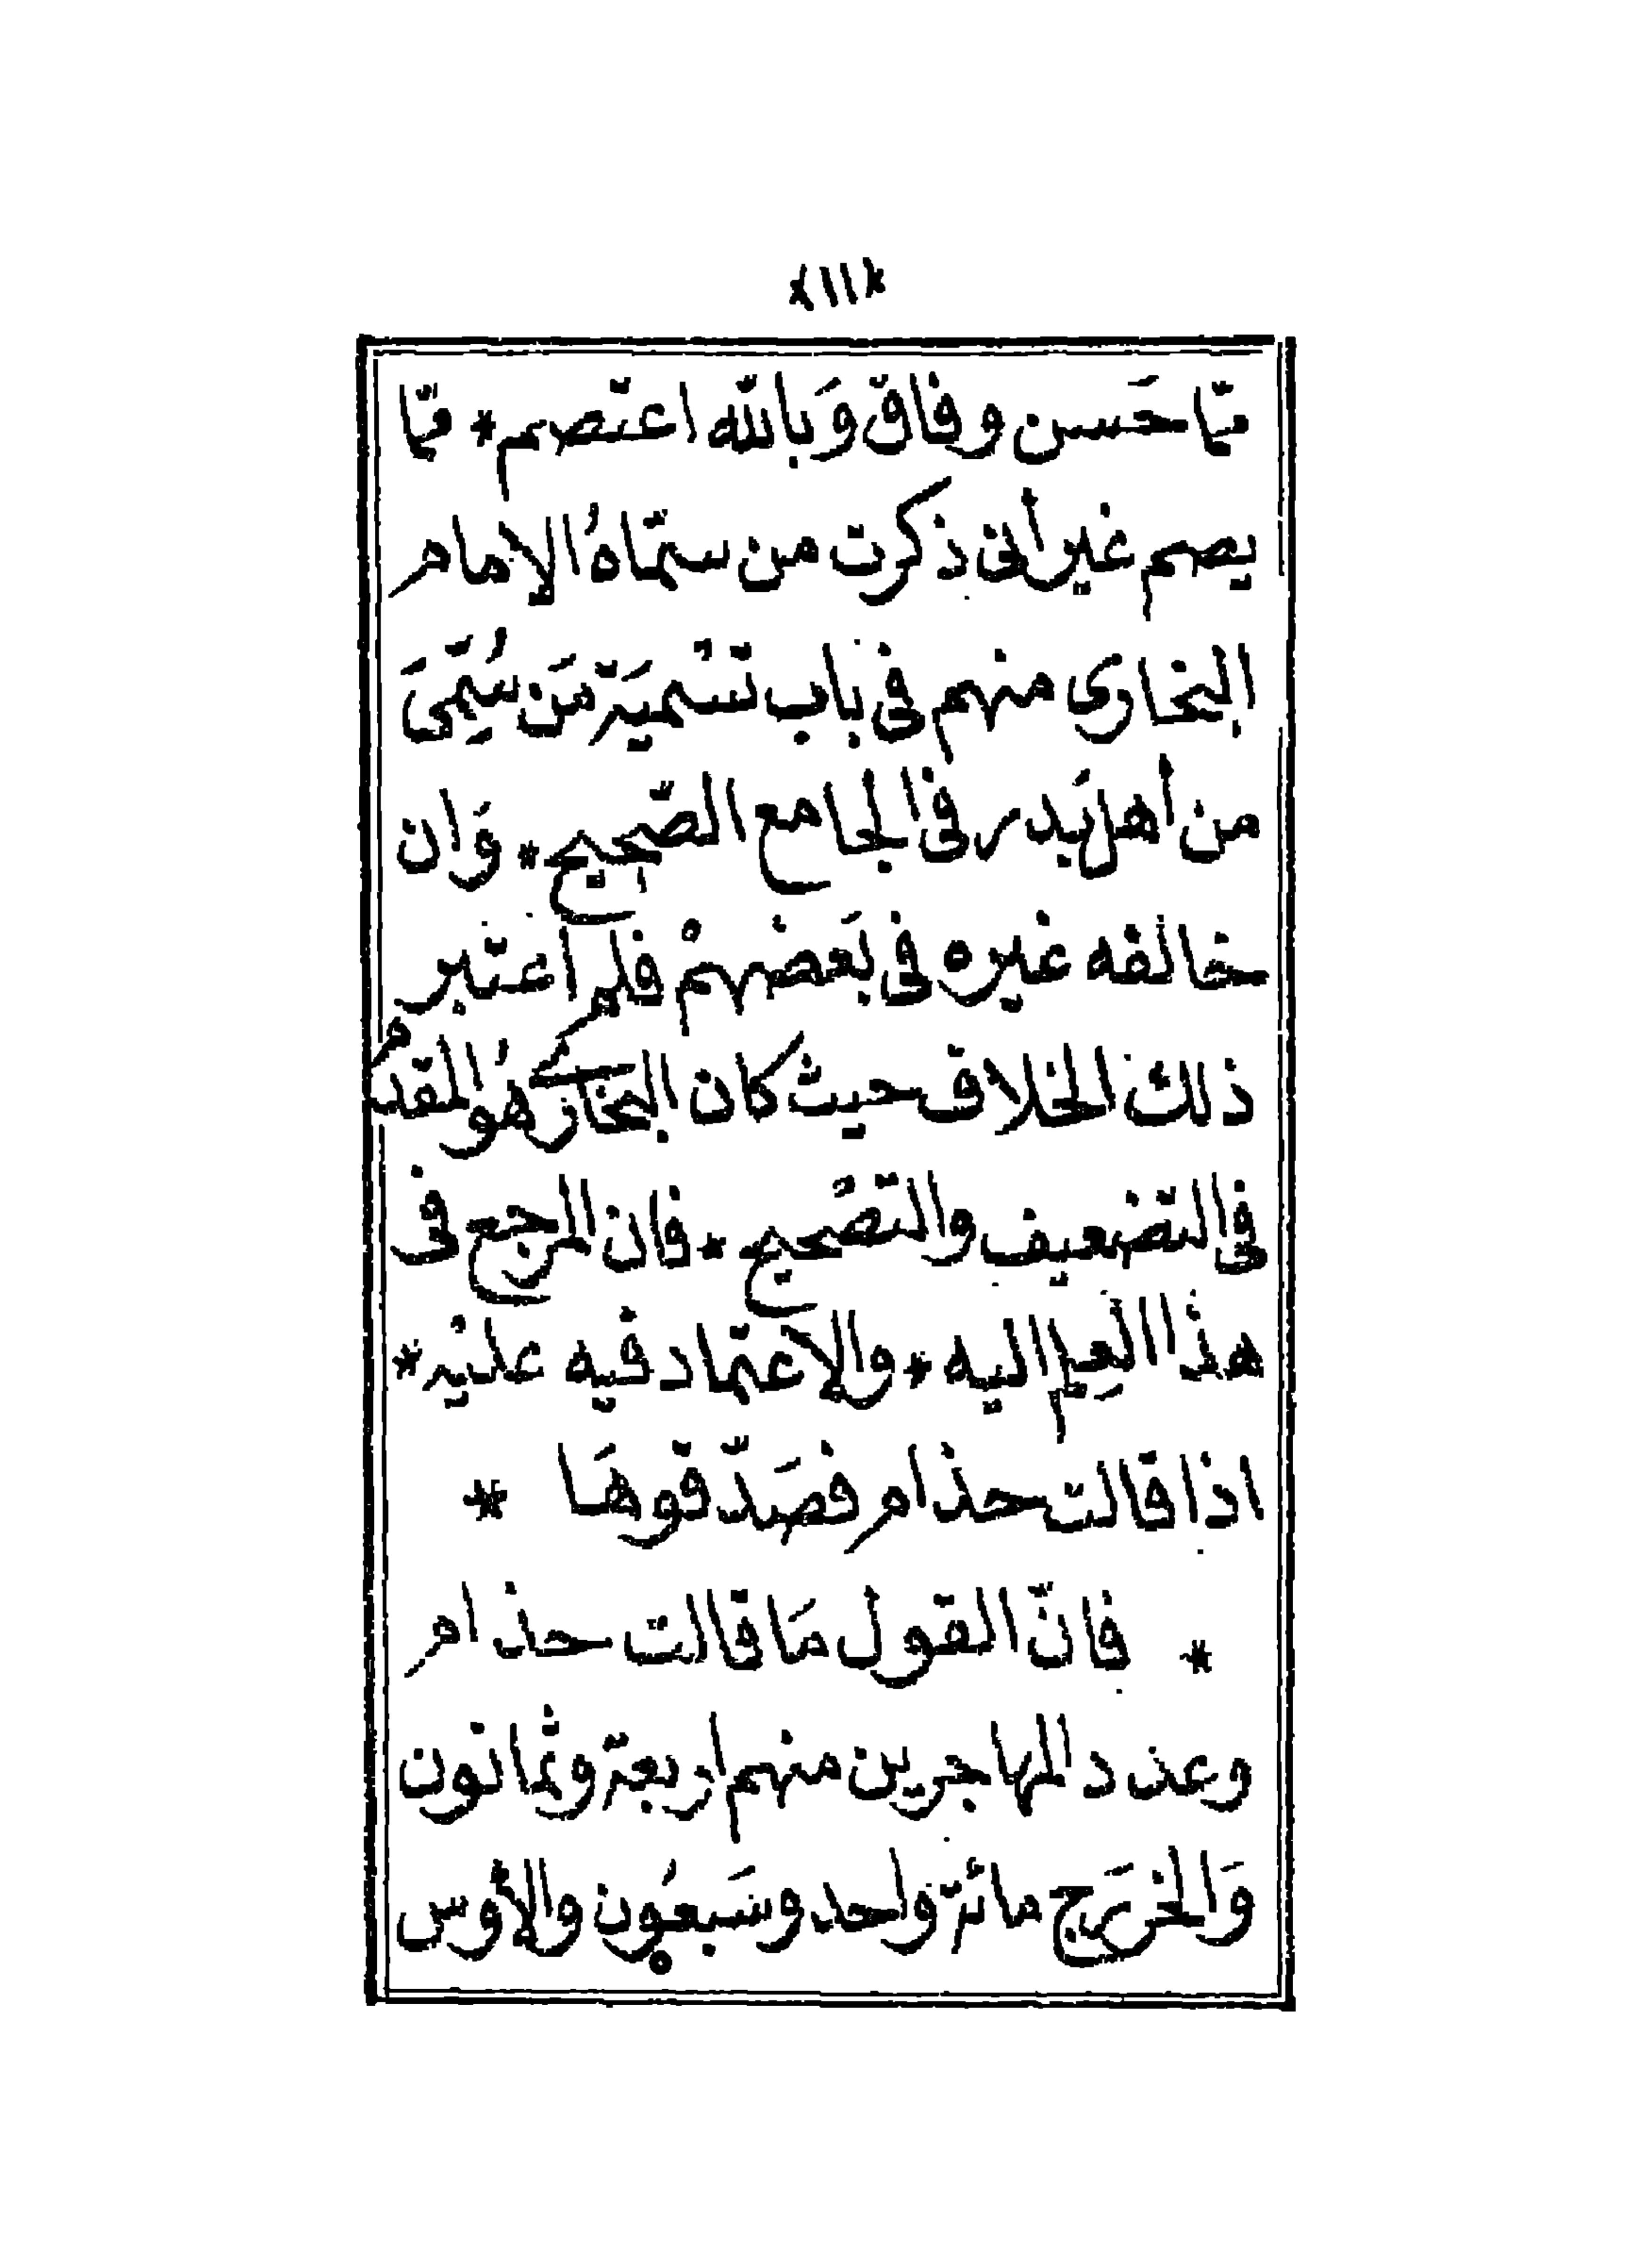 ﴿١١﴾
ممّا حَسن وفاق وَبالله اعتصم * ممّا
يصم غير أنى ذكرت من سمّاهُ الإمام
البخارى منهم فى باب تسْميَة مَن سُمّىَ
من أهل بَدر فى الجامع الصّحيح * وَان
خالفه غيره فى بَعضهمْ فلم اعتبر
ذلك الخلاف حيث كان البخارى هوُ المقدّمُ
فى التضعيف والتصْحيح * فان المرجع فى
هذا العِلم اليه * والاعتماد فيه عليْه *
اذا قالت حذام فصَدّقوهَا *
* فانّ القول مَا قالت حذام
وعدد المهاجرين منهم اربعة وثمانون
وَالخزرَج مائة واحد وسَبعُون والأوس